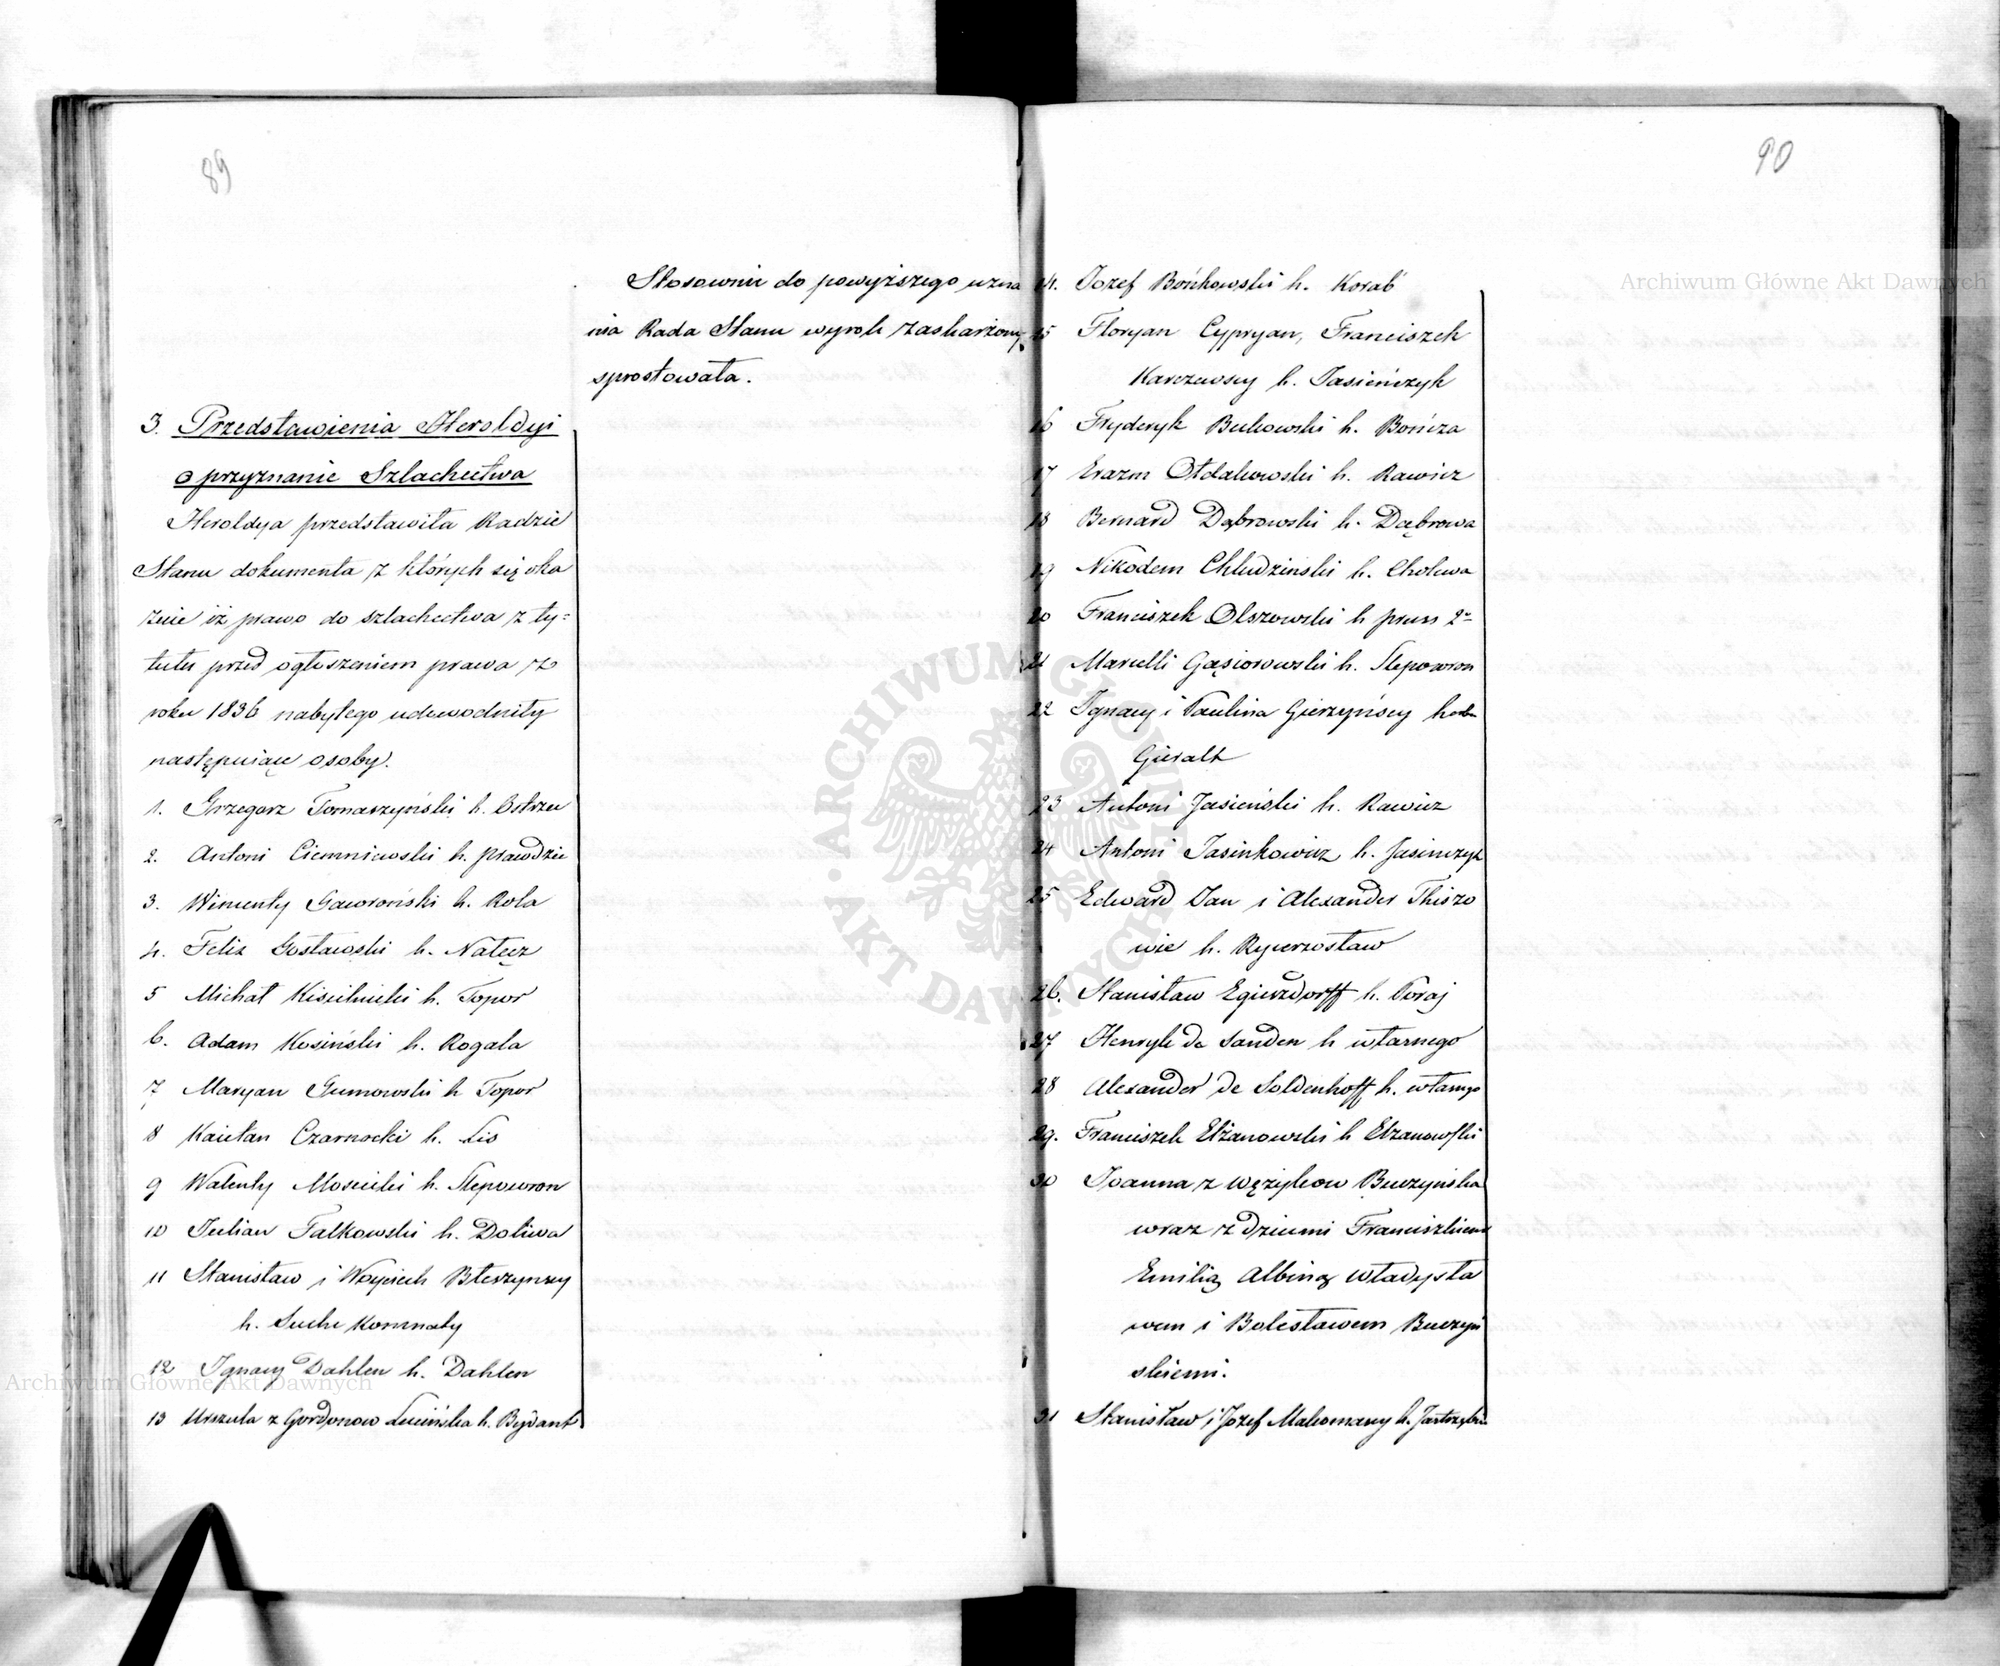 89
Stosownie do powyższego uzna
nia Rada Stanu wyrok zaskarżony
sprostowała.
3. Przedstawienia Heroldyi
o przyznanie Szlachectwa
Heroldya przedstawiła Radzie
Stanu dokumenta z których się oka
zuie iż prawo do szlachectwa z ty=
tułu przed ogłoszeniem prawa z
roku 1836 nabytego udowodniły
następuiące osoby.
1. Grzegorz Tomaszyński h.
2. Antoni Ciemniewski h. Prawdzic
3. Wincenty Gaworoński h. Rola
4. Felix Gosławski h. Nałęcz
5 Michał Kisielnicki h. Topor
6. Adam Kosiński h. Rogala
7 Maryan Gumowski h Topor
8 Kaietan Czarnocki h. Lis
9 Walenty Moscicki h. Slepowron
10 Julian Falkowski h. Doliwa
11 Stanisław i Woyciech
h. Suche Komnaty
12 Ignacy Dahlen h. Dahlen
13 Urszula z Gordonow h. Bydant
90
14. Jozef Bońkowski h. Korab
15 Floryan Cypryan, Franciszek
Karczewscy h. Jasieńczyk
16 Fryderyk Bukowski h. Bończa
17 Erazm Ołdakowski h. Rawicz
18 Bernard Dąbrowski h. Dąbrowa
19 Nikodem Chludzinski h. Cholewa
20 Franciszek Olszowski h pruss 2o
21 Marcelli Gąsiorowski h. Slepowron
22 Ignacy i Paulina Gierzyńscy herbu
Gieralt
23 Antoni Jasieński h. Rawicz
24 Antoni Jasinkowicz h. Jasinczyk
25 Edward Jan i Alexander Thiszo
wie h.
26. Stanisław Egierzdorff h. Poraj
27 Henryk de Sanden h własnego
28 Alexander de Soldenhoff h. własngo
29. Franciszek Elżanowski h Elzanowski
30 Joanna z Wężykow Buczyńska
wraz z dziecmi Franciszkiem
Emilią Albiną Władysła
wem i Bolesławem Buczyń
skiemi.
31 Stanisław i Jozef Makomascy h. Jastrzębiec
Archiwum Główne Akt Dawnych
Archiwum Główne Akt Dawnych
ARCHIWUM GŁÓWNE AKT DAWNYCH